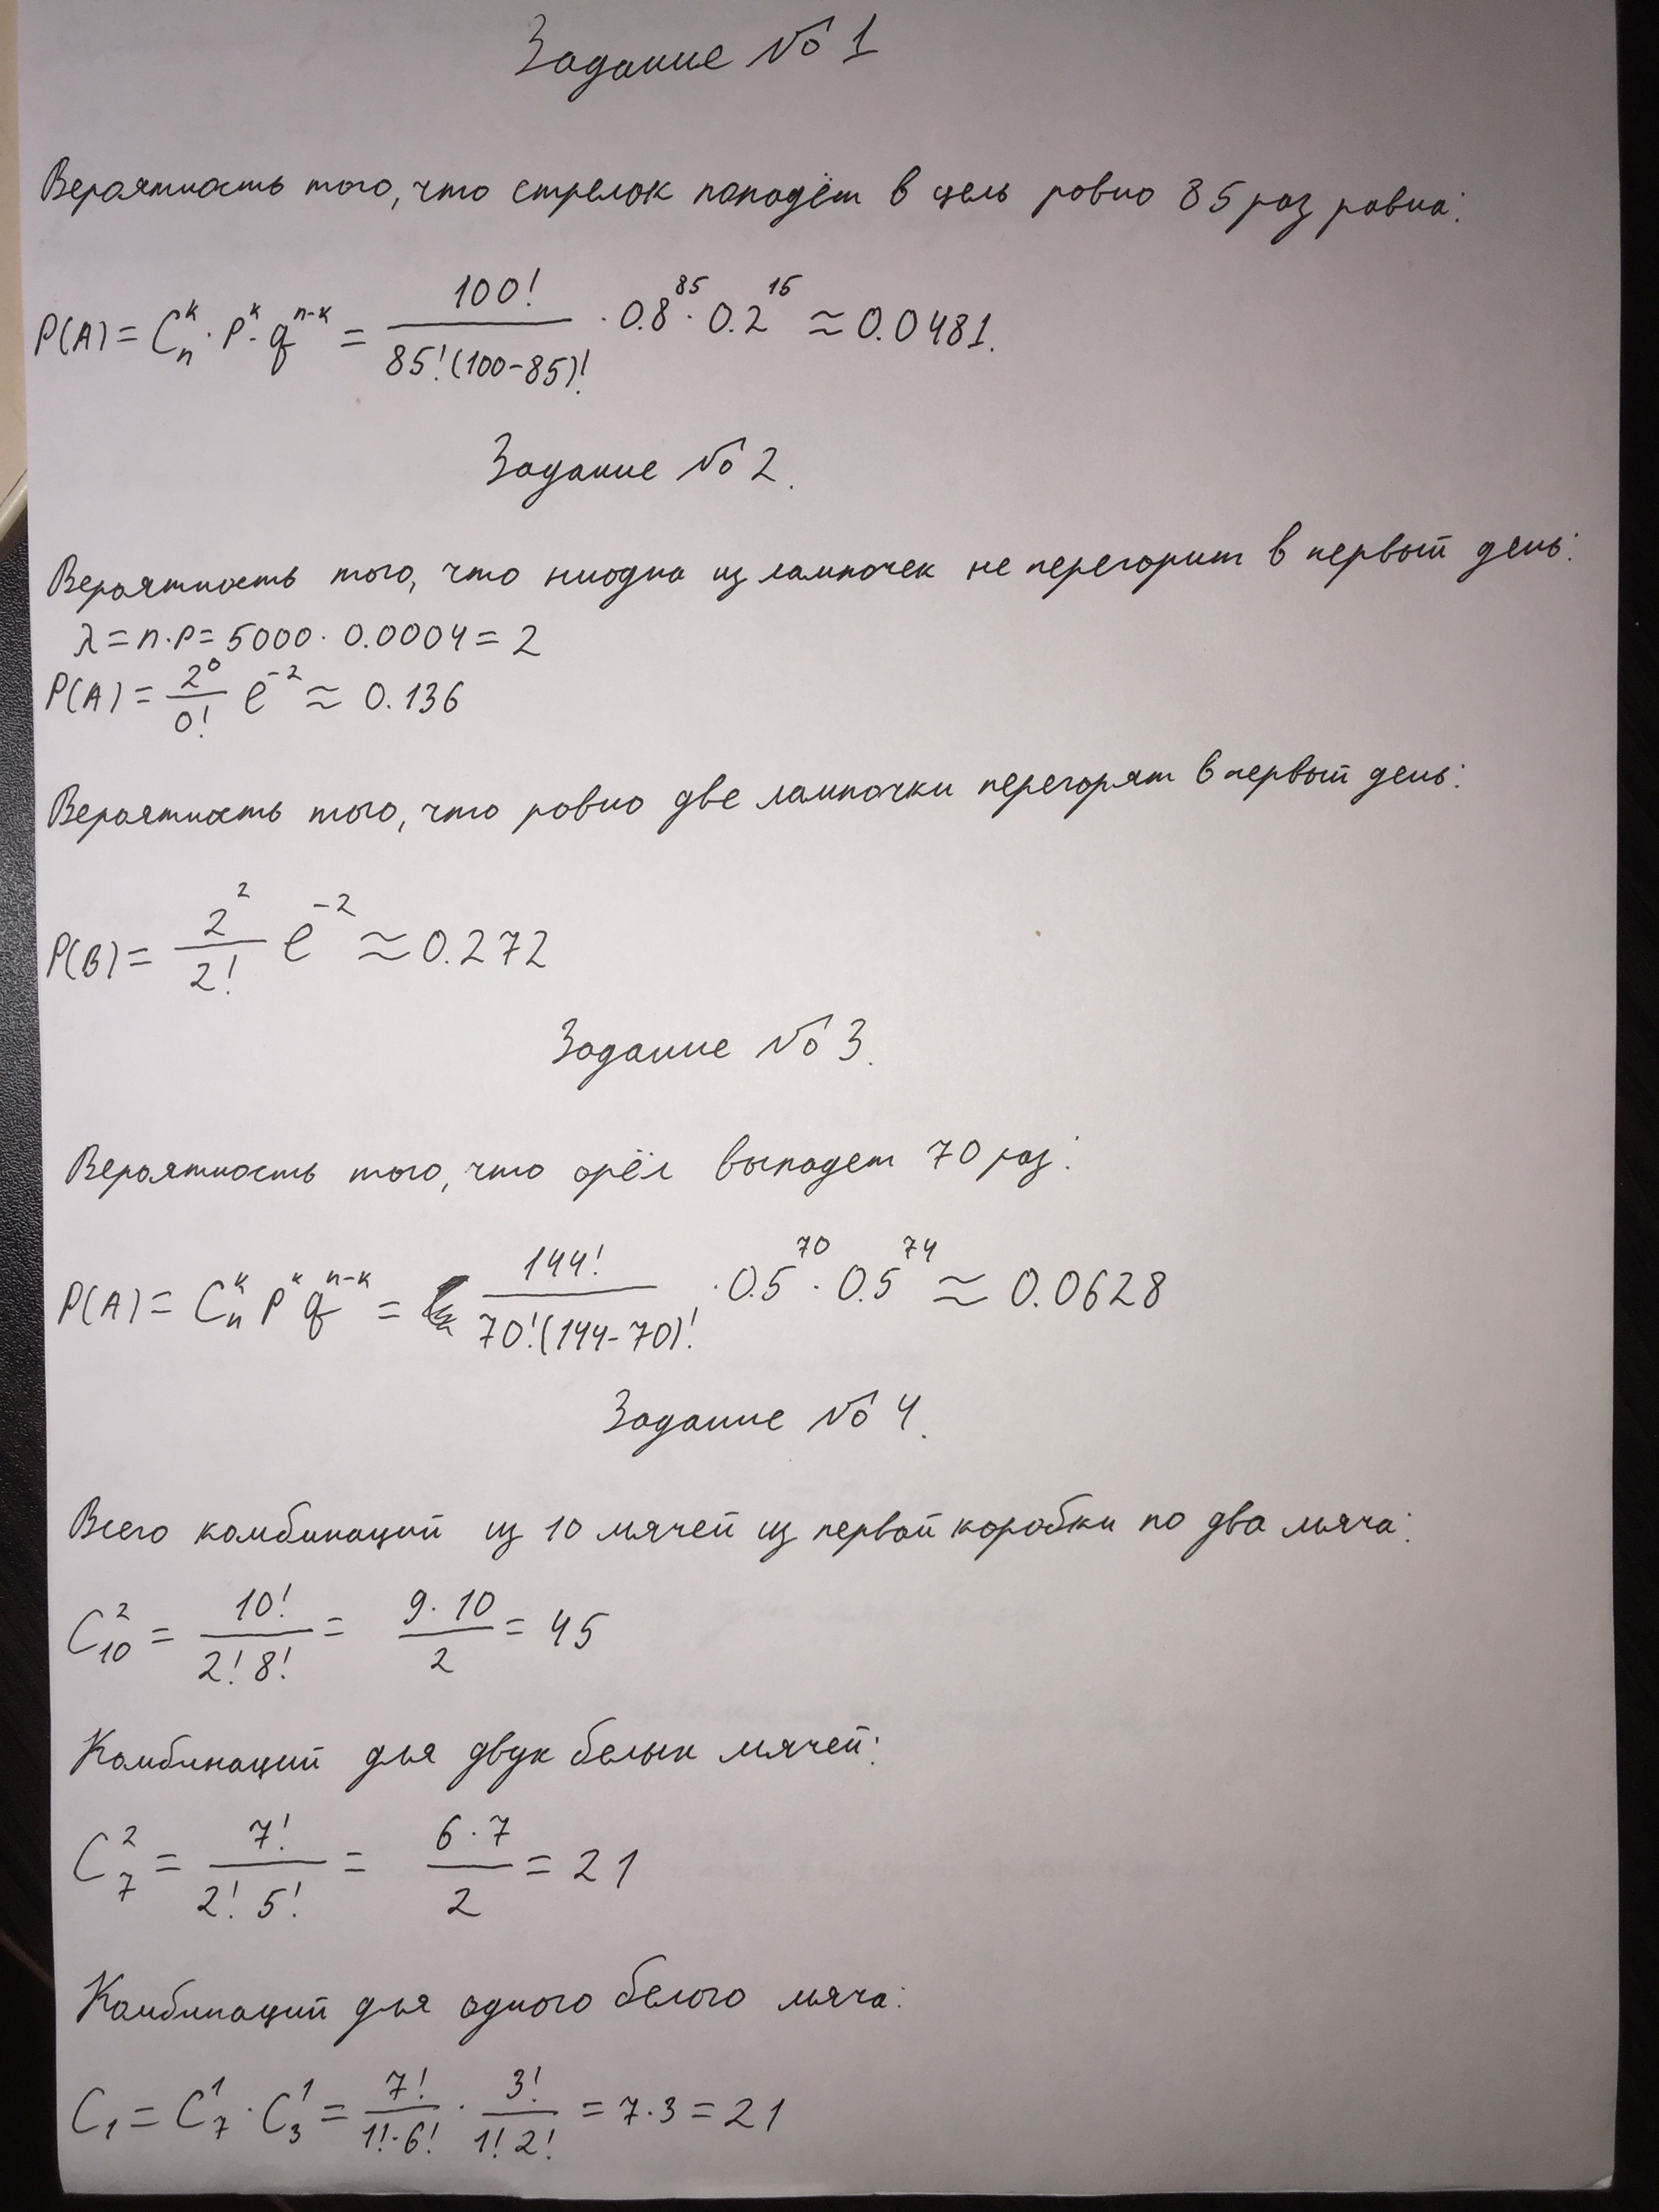 Задание № 1
Вероятность того, что стрелок попадёт в цель ровно 85 раз равна:
P(A) = C_n^k · P^k · q^{n-k} = \frac{100!}{85!(100-85)!} · 0.8^{85} · 0.2^{15} ≈ 0.0481.
Задание № 2.
Вероятность того, что ниодна из лампочек не перегорит в первый день:
λ = n·P = 5000 · 0.0004 = 2
P(A) = \frac{2^0}{0!} e^{-2} ≈ 0.136
Вероятность того, что ровно две лампочки перегорят в первый день:
P(B) = \frac{2^2}{2!} e^{-2} ≈ 0.272
Задание № 3.
Вероятность того, что орёл выпадет 70 раз:
P(A) = C_n^k P^k q^{n-k} = \frac{144!}{70!(144-70)!} · 0.5^{70} · 0.5^{74} ≈ 0.0628
Задание № 4.
Всего комбинаций из 10 мячей из первой коробки по два мяча:
C_{10}^2 = \frac{10!}{2! 8!} = \frac{9·10}{2} = 45
Комбинаций для двух белых мячей:
C_7^2 = \frac{7!}{2! 5!} = \frac{6·7}{2} = 21
Комбинаций для одного белого мяча:
C_1 = C_7^1 · C_3^1 = \frac{7!}{1!·6!} · \frac{3!}{1! 2!} = 7·3 = 21